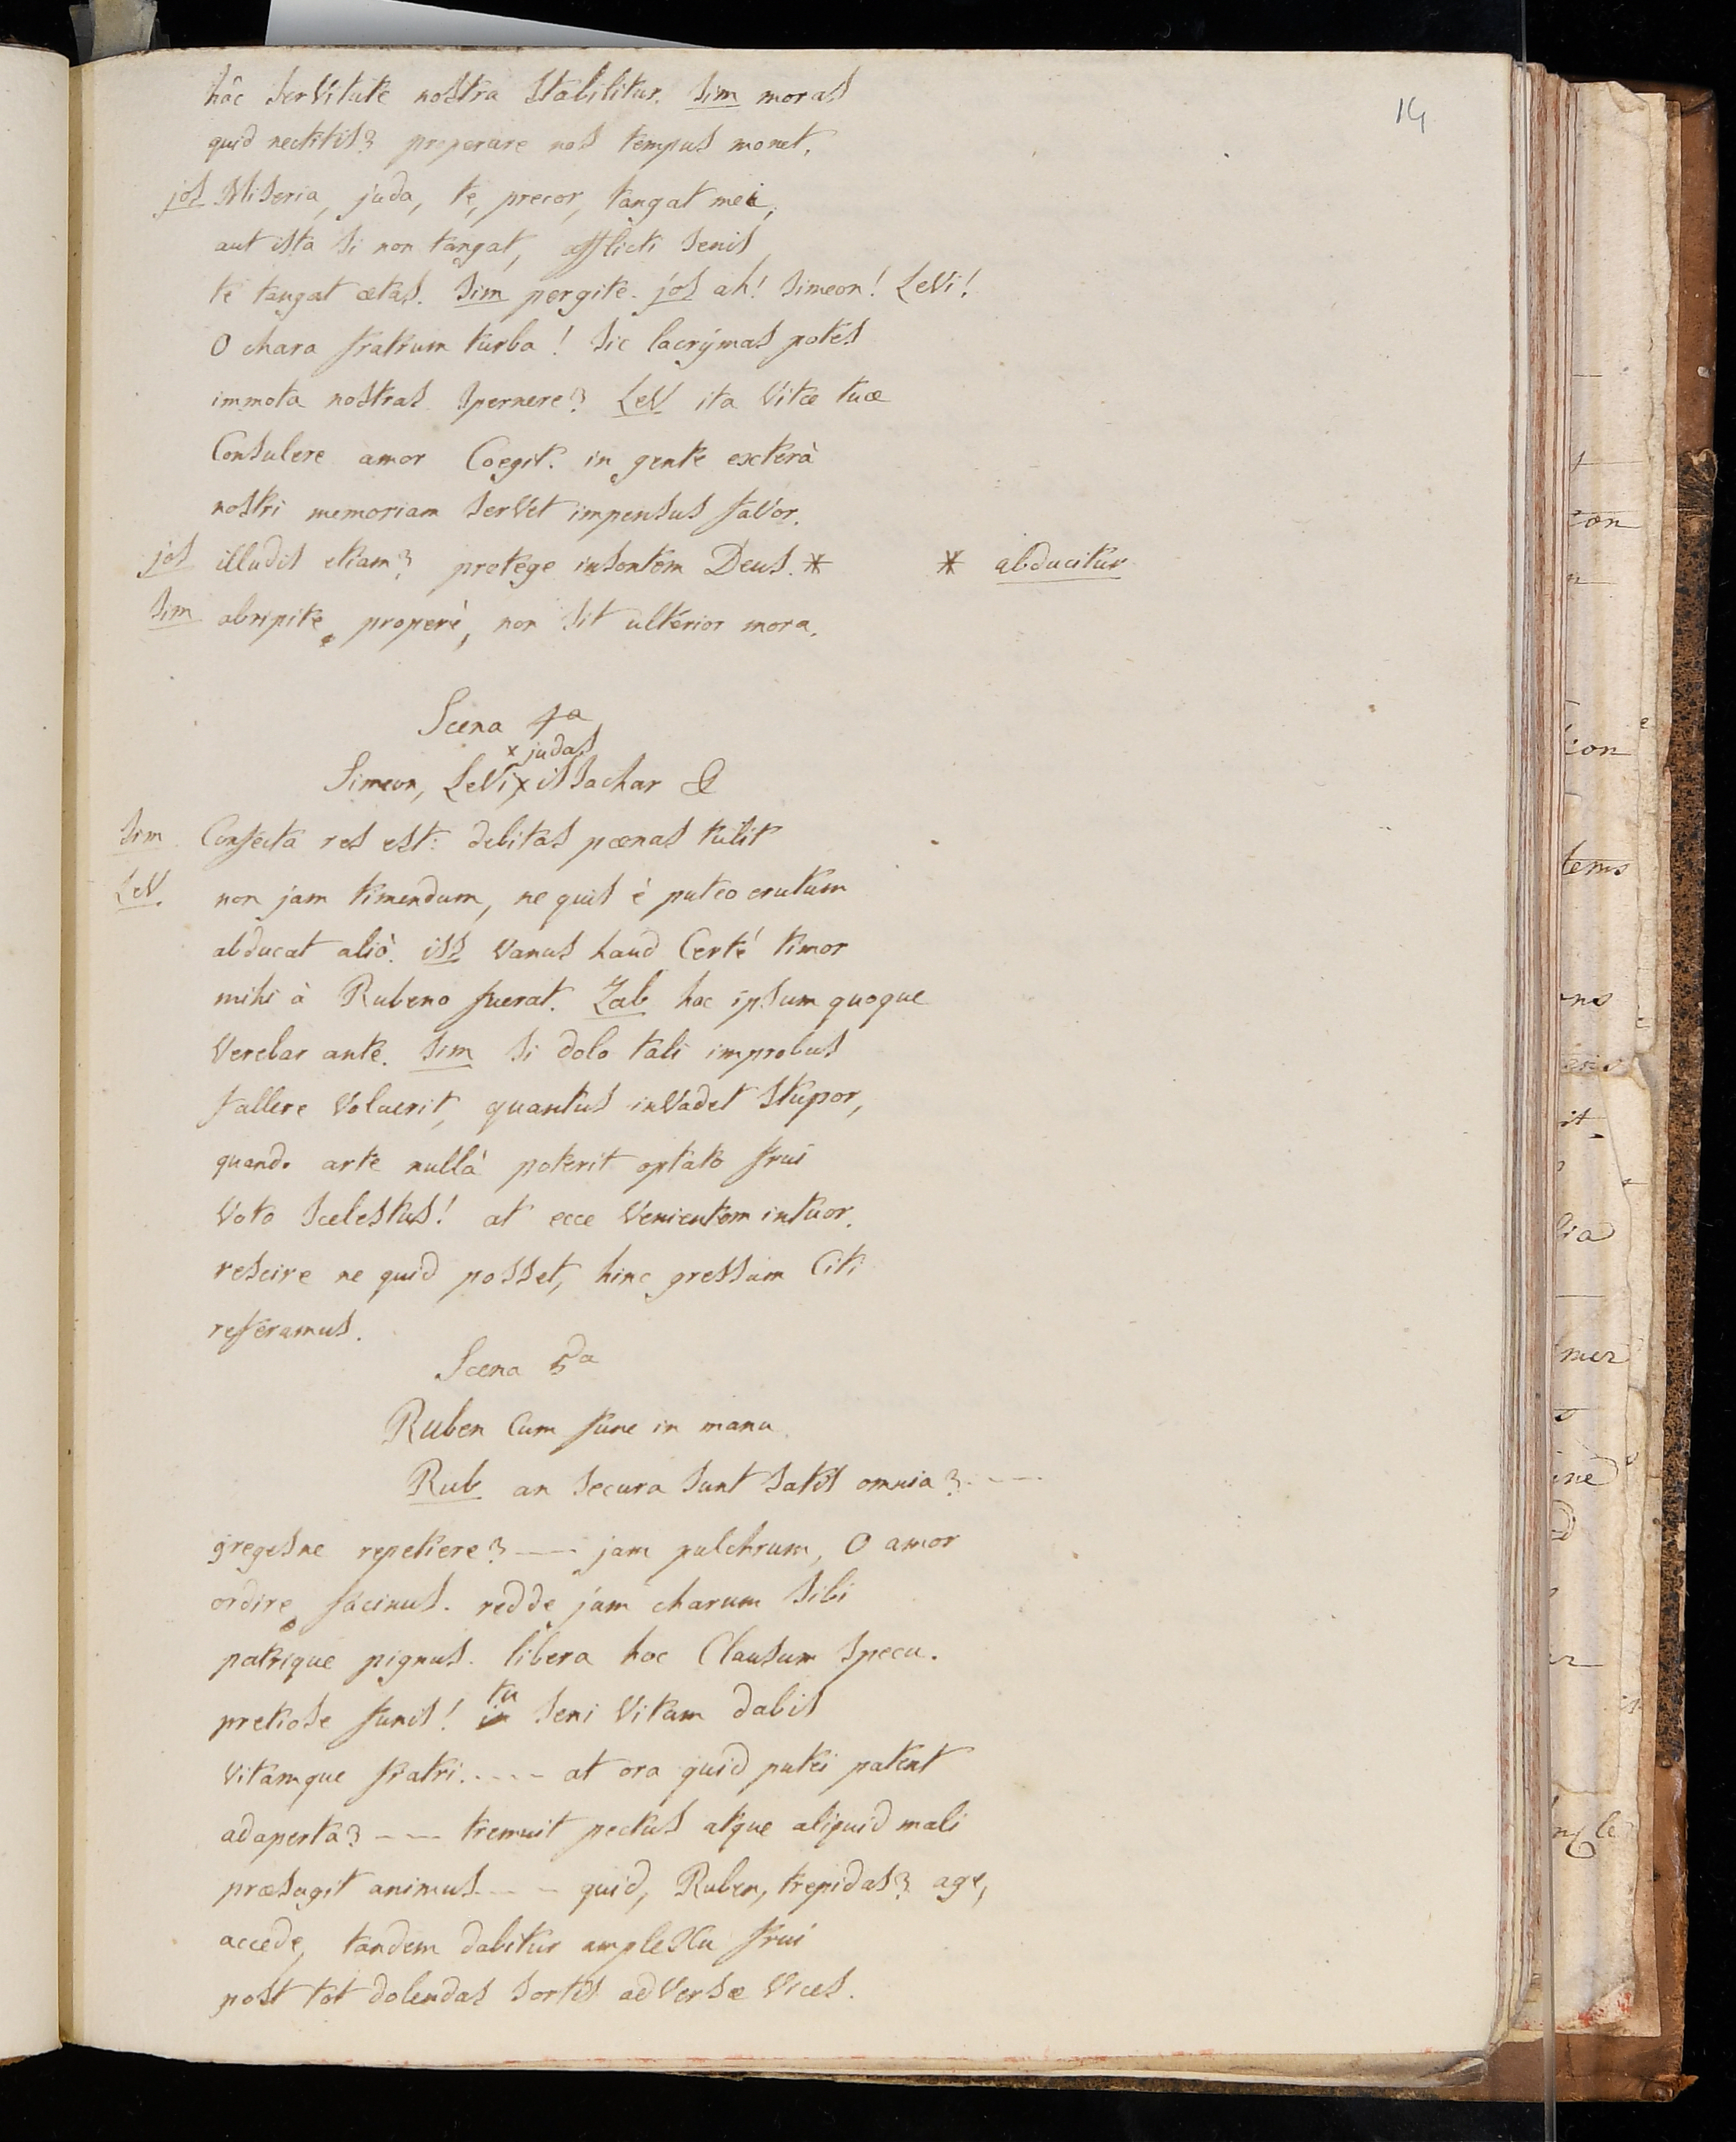 14
hâc serVitute nostra stabilitur. sim moras
quid nectitis? properare nos tempus monet.
jos Miseria, juda, te, precor, tangat mei,
aut ista si non tangat, afflicti senis
te tangat ætas. sim pergite. jos ah! simeon! LeVi!
O chara fratrum turba! sic lacrÿmas potes
immota nostras spernere? LeV ita Vitæ tuæ
Consulere amor Coegit. in gente exterà
nostri memoriam serVet impensus faVor.
jos illudis etiam? protege insontem Deus. * * abducitur
sim abripite, properè, non sit ulterior mora.
Scena 4a
x judas
Simeon, LeVi, x issachar &
sim. Confecta res est: debitas pœnas tulit
LeV. non jam timendum, ne quis è puteo erutum
abducat aliò. iss Vanus haud Certé timor
mihi à Rubeno fuerat. Zab hoc ipsum quoque
Verebar ante. sim si dolo tali improbus
fallere Voluerit, quantus inVadet stupor,
quando arte nullâ poterit optato frui
Voto scelestus! at ecce Venientem intuor.
rescire ne quid posset, hinc gressum Citi
referamus.
Scena 5a
Ruben Cum fune in manu.
Rub an secura sunt satis omnia? ----
gregesne repetiere? --- jam pulchrum, O amor
ordire facinus. redde jam charum sibi
patrique pignus. libera hoc Clausum specu.
tu
pretiose funis! in seni Vitam dabis
Vitamque fratri. ---- at ora quid putei patent
adaperta? ---- tremuit pectus atque aliquid mali
præsagit animus --- quid, Ruben, trepidas? age,
accede, tandem dabitur ampleXu frui
post tot dolendas sortis adVersæ Vices.